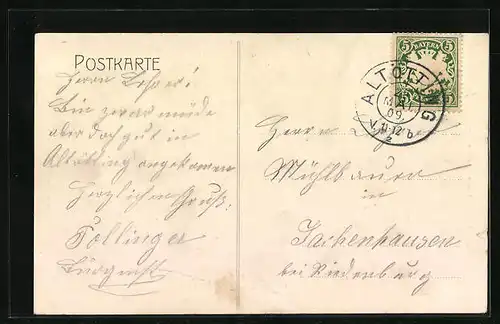 POSTKARTE
Herrn Lehrer!
Bin zwar müde
aber doch gut in
Altötting angekommen
Herzlichen Gruß.
Tollinger
BAYERN
5 5
ALTÖTTING
09.
V. 11-12
Herrn
Mühlbauer
in
Jachenhausen
bei Riedenburg